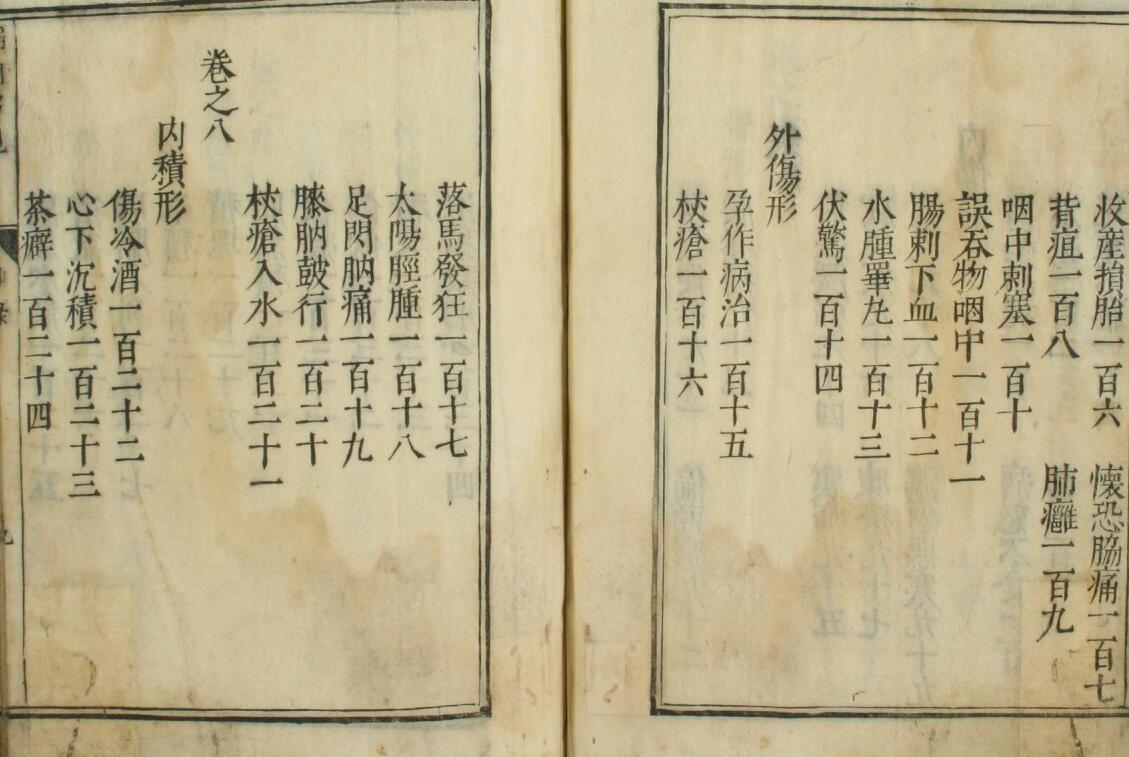 收産損胎一百六　懷恐脇痛一百七
背疽一百八　肺癰一百九
咽中刺塞一百十
誤吞物咽中一百十一
腸刺下血一百十二
水腫睪丸一百十三
伏驚一百十四
外傷形
孕作病治一百十五
杖瘡一百十六
落馬發狂一百十七
太陽脛腫一百十八
足閃肭痛一百十九
膝肭鼓行一百二十
杖瘡入水一百二十一
卷之八
內積形
傷冷酒一百二十二
心下沉積一百二十三
茶癖一百二十四